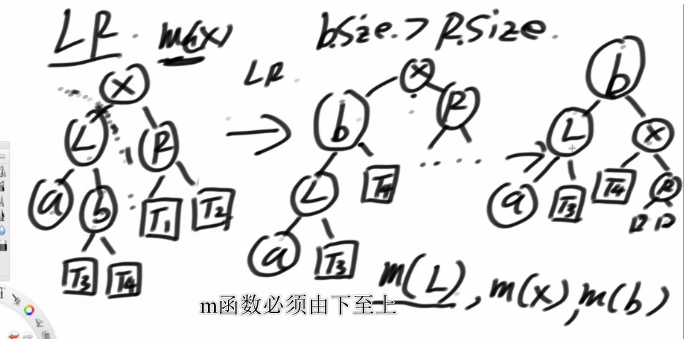 LR. m(x) b.size. > R.size.
LR
X
L R
a b T1 T2
T3 T4
X
b R
L T4
a T3
b
L X
a T3 T4 R
m(L), m(x), m(b)
m函数必须由下至上